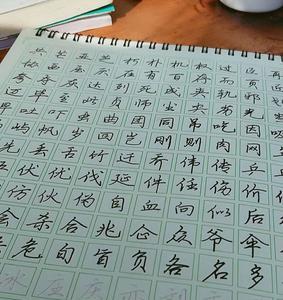 芝 亚 朽 朴 机 权 过 臣 再
协 压 厌 在 百 有 存 而 页 匠
夸 夺 灰 达 列 死 成 夹 夷 轨 邪
迈 毕 至 此 贞 师 尘 尖 劣 光
早 吐 吓 虫 曲 团 同 吊 吃 因 吸
屿 帆 岁 回 岂 刚 则 肉 网 年
先 丢 舌 竹 迁 乔 伟 传 乒 乓
伍 伏 优 伐 延 件 任 伤 价
仿 伙 伪 自 血 向 似 后
会 杀 合 兆 企 众 爷 伞
危 旬 旨 负 各 名 多